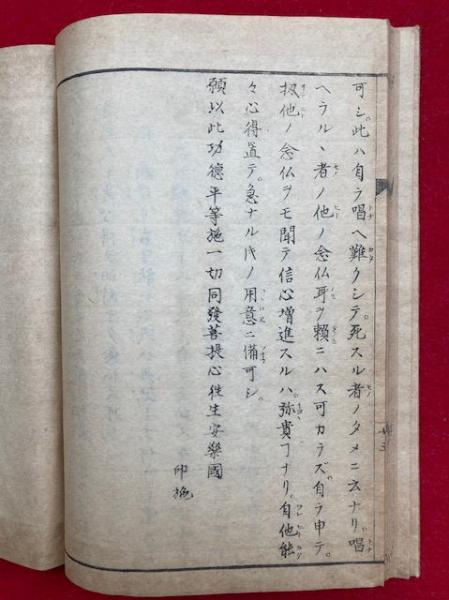 可シ。此ハ自ラ唱ヘ難クシテ。死スル者ノタメニ云ナリ。唱
ヘラルヽ者ノ他ノ念仏耳ヲ頼ニハス可カラズ。自ラ申テ。
扨他ノ念仏ヲモ聞テ信心増進スルハ。弥貴ヿナリ。自他能
々心得置テ。急ナル時ノ用意ニ備可シ。
願以此功徳平等施一切同發菩提心徃生安樂國